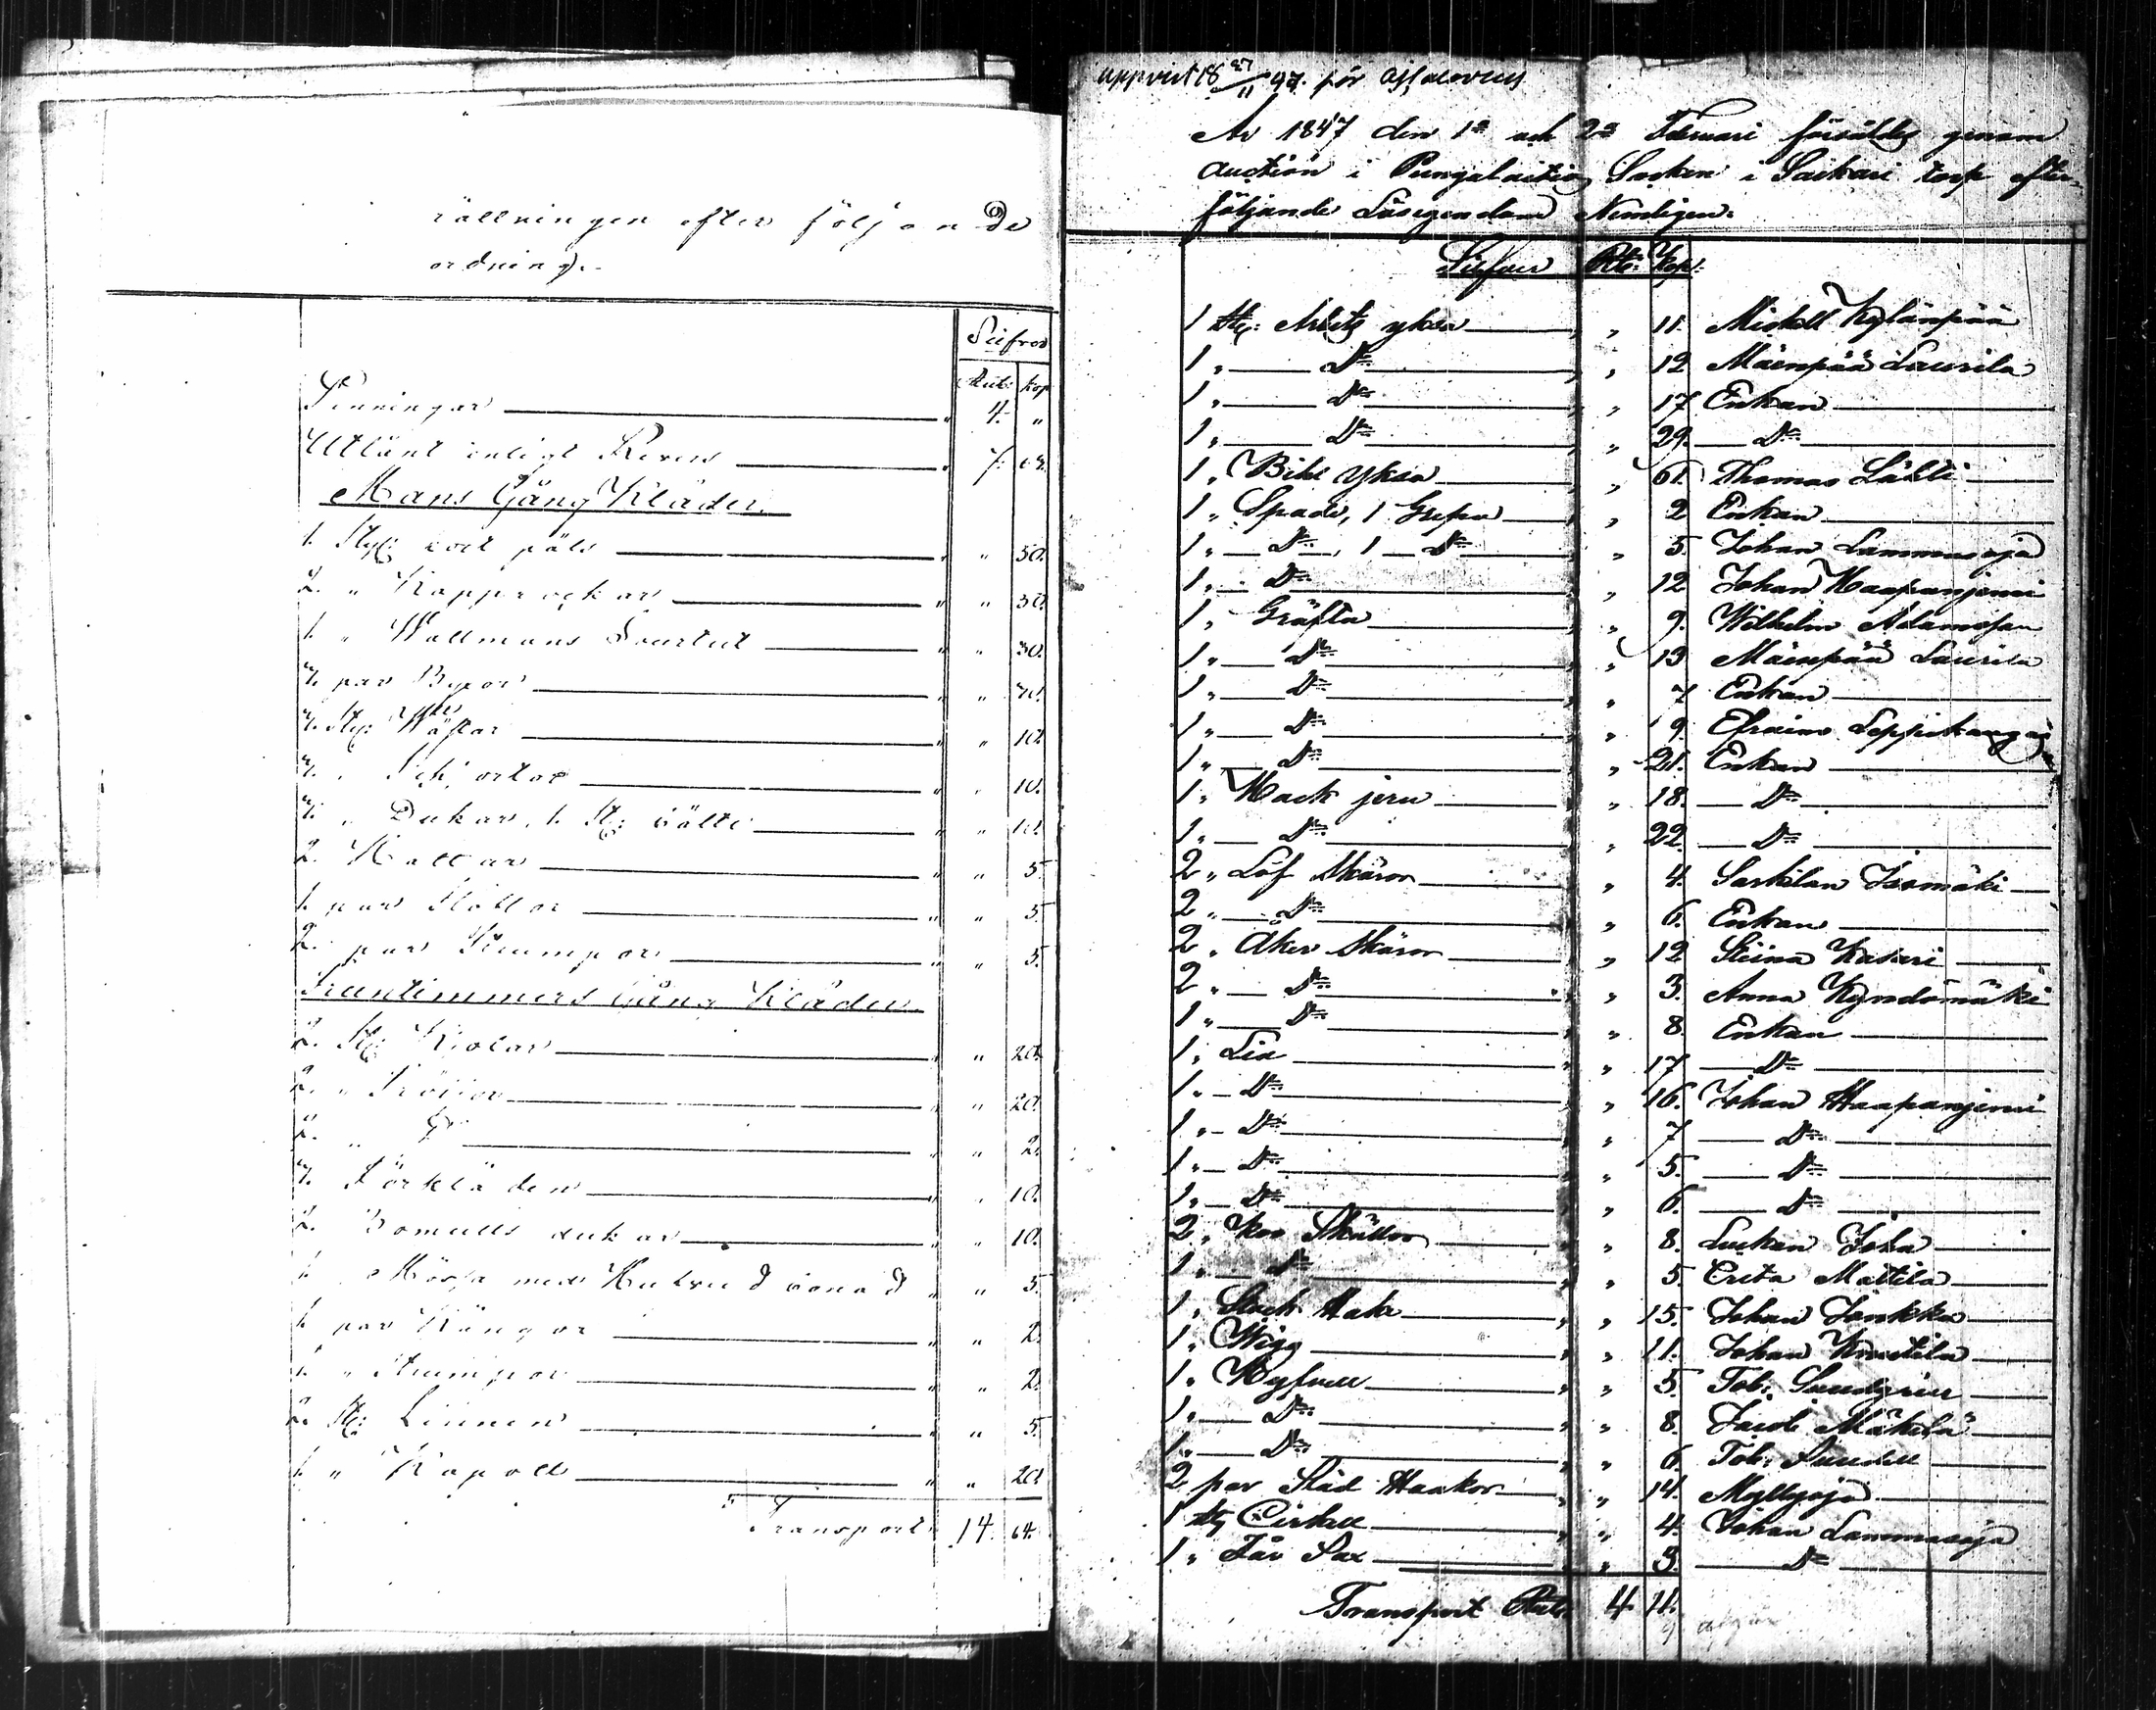 rättningen efter följande
ordning.
Silfver
Rub: kop
Penningar " 4. "
Utlånt enligt Revers " 7.
Mans Gång Kläder.
1. styk: päls " " 50.
2. " Kapprockar " " 30.
1. " Wallmans " " 30.
par Byxor " "
Styk: Wästar " " 10.
" Skjortor " " 10.
" Dukar, 1. St: bälte " " 10.
2. Hattar " " 5.
1. par Stöflor " " 5.
2. par Strumpor " " 5.
Fruntimmers Gång Kläder
2. St: Kiolar " " 20.
2. " Tröijor " " 20.
2. " Do " " 2.
Förkläden " " 10.
2. Bomulls dukar " " 10.
1. Mössa med Hufvud bonad " " 5.
1. par Kängor " " 2.
1. " Strumpor " " 2.
2. St: Linnen " " 5.
1. " " " 20.
Transport 14. 64.
uppvist 18 27/11 47. för
År 1847 den 1a och 2a Februari försåldes genom
auction i Pungalaitio Socken i torp efter-
följande Lösegendom Nemligen:
Silfver Rub: Kop:
1 sty: Arbets yksa " " 11. Mickell Kylänpää
1 " Do " " 12 Mäenpää Laurila
1 " Do " " 17 Enkan
1 " Do " 29. Do
1 " Bihl yksa " 61. Thomas Lähti
1 " Spade, 1 Grepa " 2 Enkan
1 " Do, 1 Do " 5. Johan Lammasoja
1 " Do " 12 Johan Haapaniemi
1 " Gräfta " 9. Wilhelm Adamsson
1 " Do " 13 Mäenpää Laurila
1 " Do " 7 Enkan
1 " Do " 9. Efraim Leppikangas
1 " Do " 21. Enkan
1 " Hack jern " 18. Do
1 " Do " 22. Do
2 " Löf Skäror " 4. Sarkilan Isomäki
2 " Do " 6. Enkan
2 " Åker Skäror " 12 Stina Kasari
2 " Do " 3. Anna
1 " Do " 8. Enkan
1 " Lia " 17 Do
1 " Do " 16. Johan Haapaniemi
1 " Do " 7 Do
1 " Do " 5. Do
1 " Do " 6. Do
2 " Koo Skällor " 8. Luckan Joha
1 " Do " 5. Greta Mattila
1 " Stock Haka " " 15. Johan Jankka
1 " Wigg " " 11. Johan Knuutila
1 " Hyfvell " " 5. Tob: Sundgren
1 " Do " " 8. Jacob Mäkelä
1 " Do " " 6. Tob:
2 par Städ Haakor " " 14. Myllyoja
1 sty Cirkell " " 4. Johan Lammasoja
1 " Får Sax " " 3. Do
Transport Rub: 4 11.